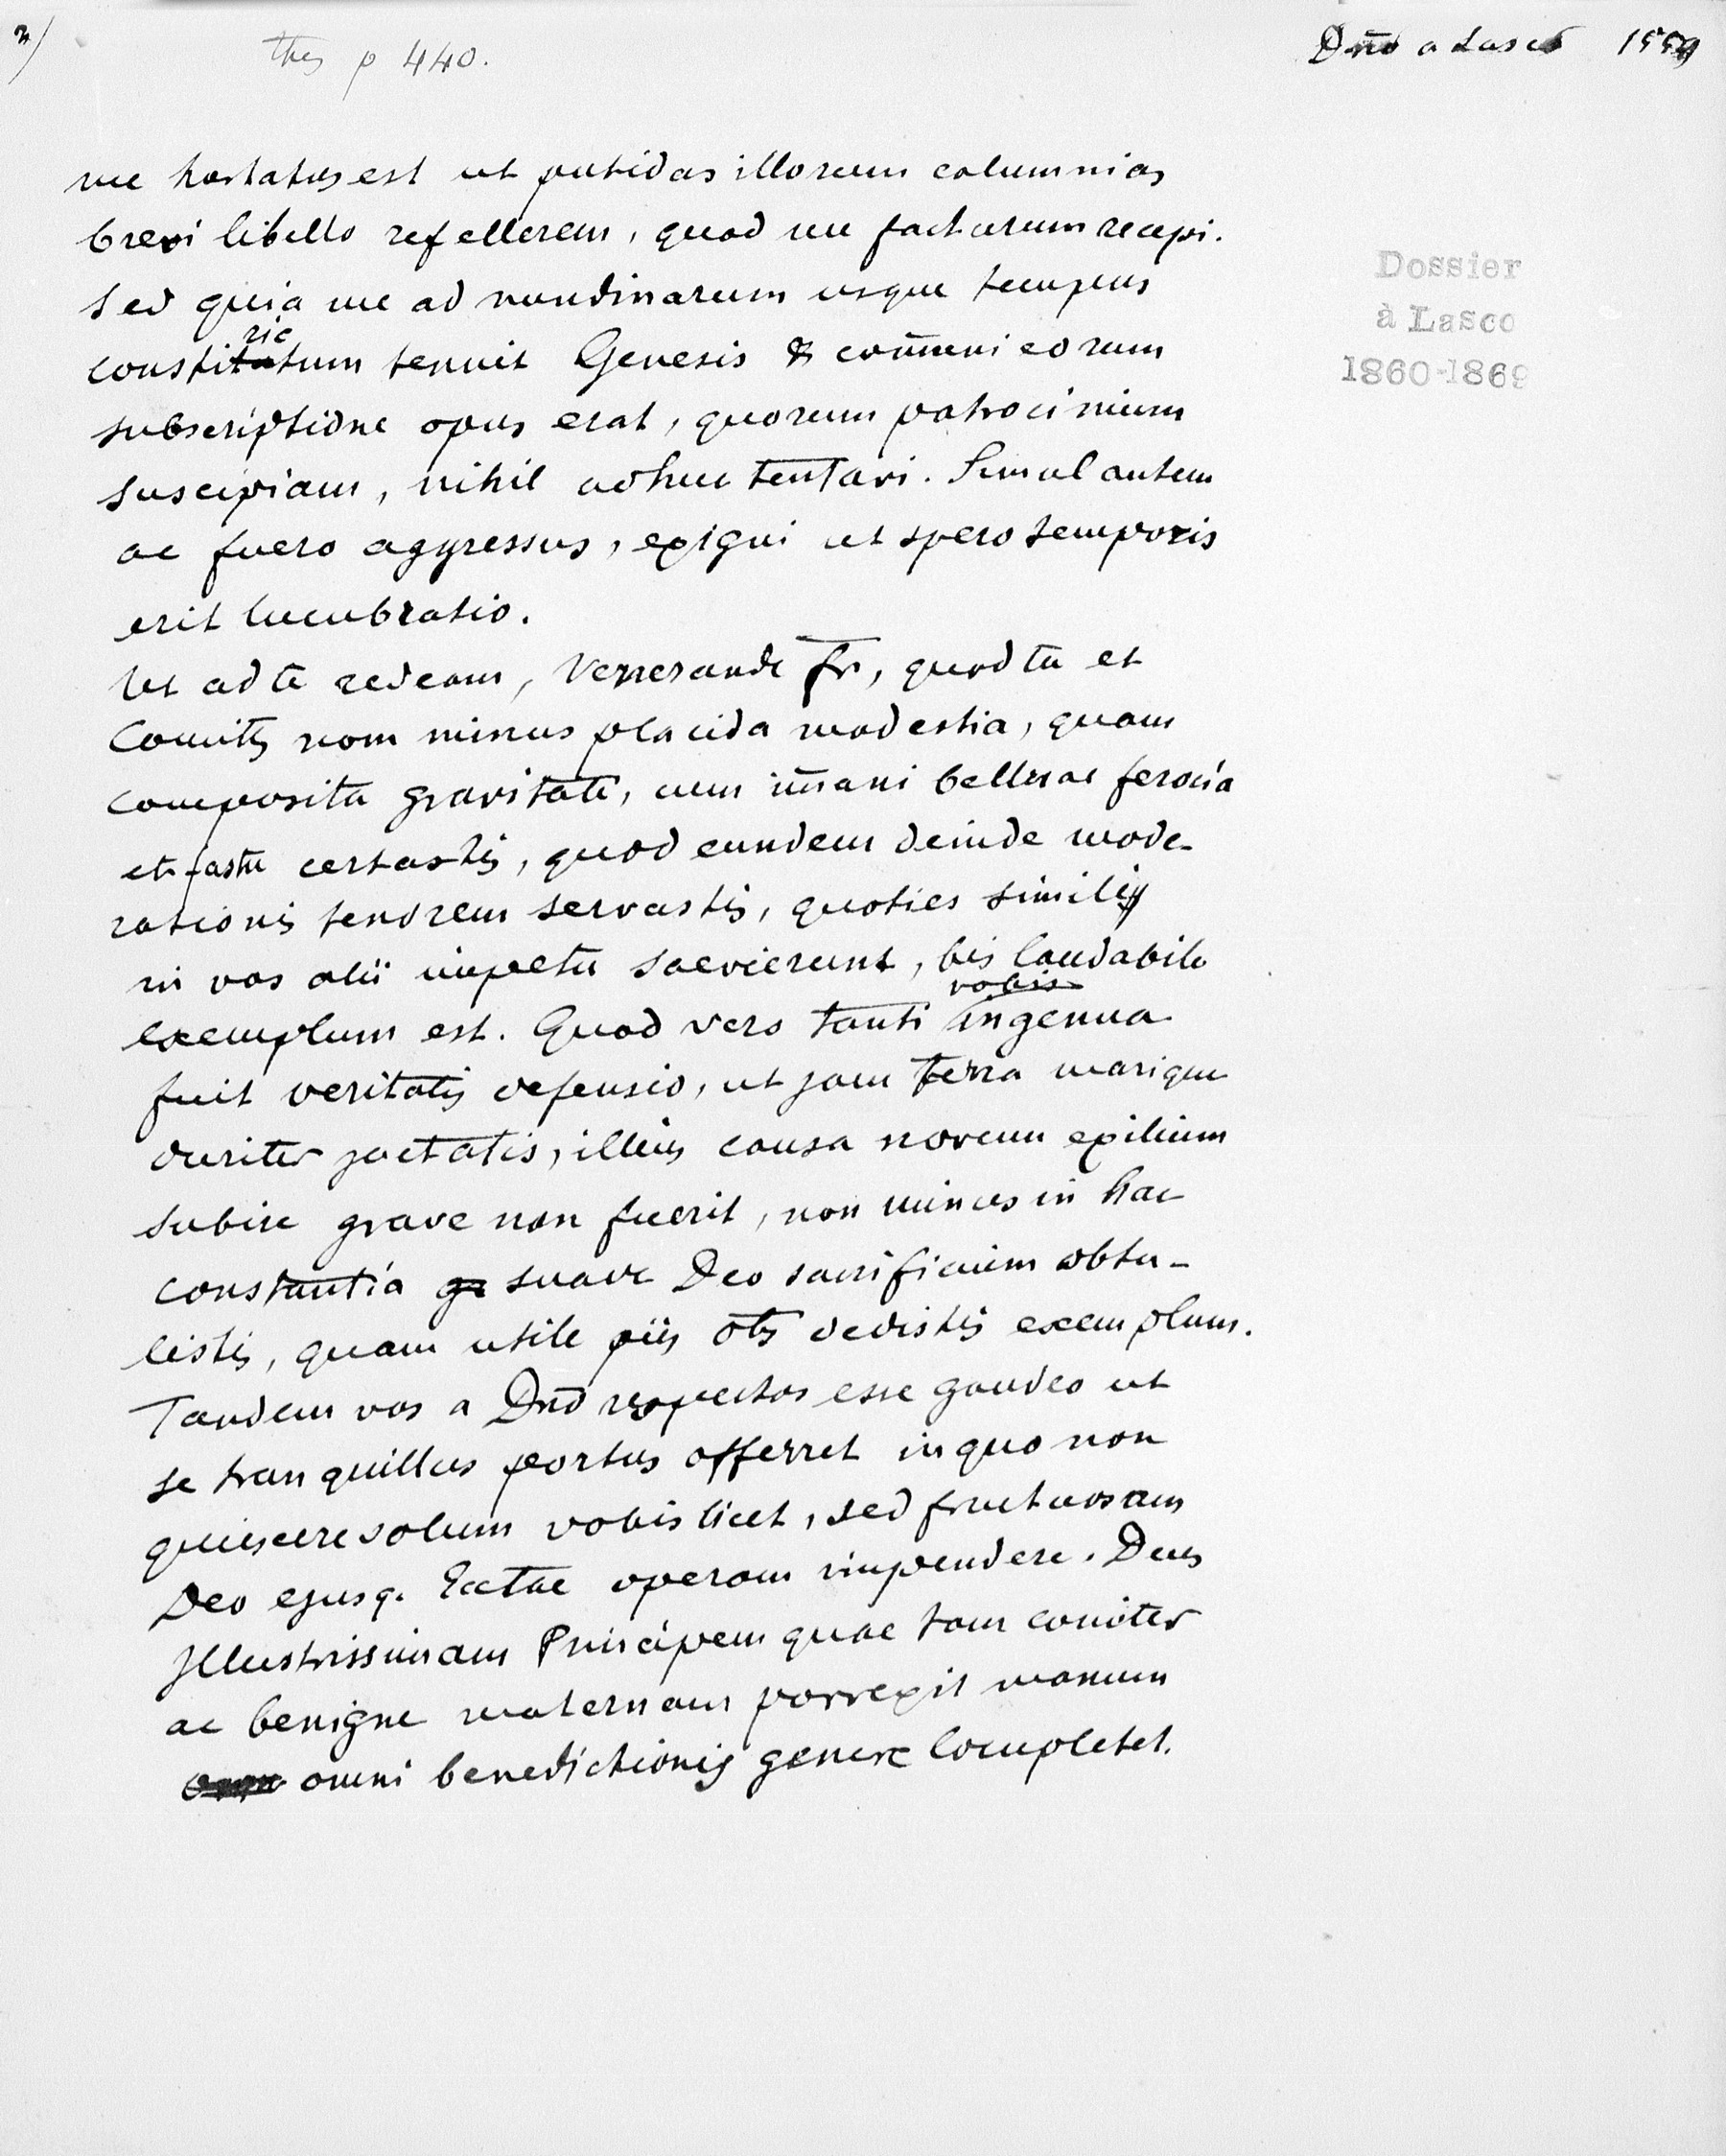 2)
thes p 440.
Dnō a Lasco 1554
me hortatus est ut putidas illorum calumnias
brevi libello refellerem, quod me facturum recepi.
Sed quia me ad nundinarum usque tempus
ric
constitatum tenuit Genesis & com̄uni eorum
subscriptione opus erat, quorum patrocinium
suscipiam, nihil adhuc tentavi. Simul autem
ac fuero aggressus, exigui ut spero temporis
erit lucubratio.
Ut ad te redeam, Venerande fr, quod tu et
Comites non minus placida modestia, quam
composita gravitate, cum im̄ani belluae ferocia
et fastu certastis, quod eundem deinde mode-
rationis tenorem servastis, quoties simili
in vos alii impetu saevierunt, bis laudabile
vobis
exemplum est. Quod vero tanti ingenua
fuit veritatis defensio, ut jam terra marique
duriter jactatis, illius causa novum exilium
subire grave non fuerit, non minus in hac
constantia gr suave Deo sacrificium obtu-
listis, quam utile piis ōts dedistis exemplum.
Tandem vos a Dnō respectos esse gaudeo ut
se tranquillus portus offerret in quo non
quiescere solum vobis licet, sed fructuosam
Deo ejusq. Ecctae operam impendere. Deus
Illustrissimam Principem quae tam comiter
ac benigne maternam porrexit manum
omni benedictionis genere locupletet.
Dossier
à Lasco
1860-1869